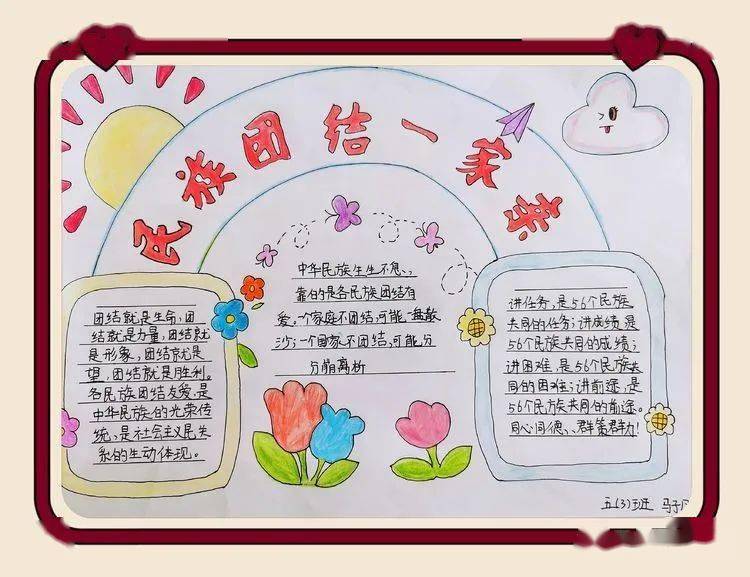 民族团结一家亲
团结就是生命,团
结就是力量,团结就
是形象,团结就是
望,团结就是胜利。
各民族团结友爱,是
中华民族的光荣传
统、是社会主义民关
系的生动体现。
中华民族生生不息、,
靠的是各民族团结有
爱。一个家庭不团结,可能一盘散
沙;一个国家不团结,可能分
分崩离析
讲任务,是56个民族
共同的任务;讲成绩,是
56个民族共同的成绩;
讲困难,是56个民族共
同的困难;讲前途,是
56个民族共同的前途。
同心同德、、群策群力!
五(3)班 马子